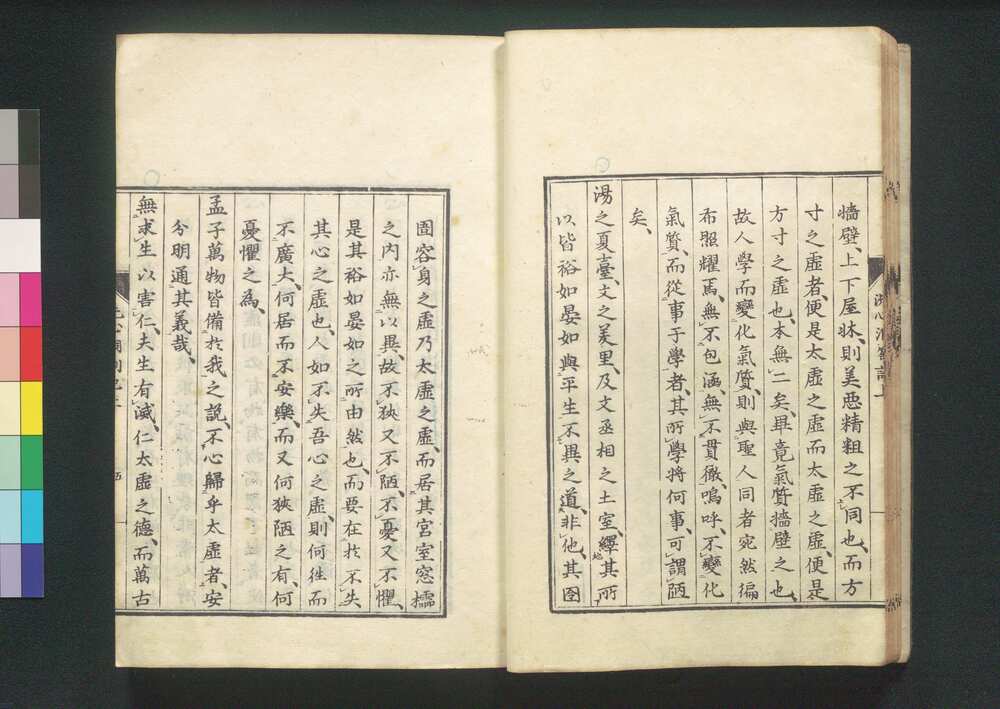 墻壁、上下屋牀、則美悪精粗之不同也、而方
寸之虛者、便是太虛之虛、而太虛之虛、便是
方寸之虛也、本無二矣、畢竟氣質墻壁之也、
故人學而變化氣質、則與聖人同者宛然徧
布照耀焉、無不包涵、無不貫徹、嗚呼、不變化
氣質、而從事于學者、其所學將何事、可謂陋
矣、
湯之夏臺、文之羑里、及文丞相之土室、繹其所
以皆裕如晏如與平生不異之道、非他、其囹
圄容身之虛乃太虛之虛、而居其宮室窓牖
之内亦無以異、故不狹又不陋、不憂又不懼、
是其裕如晏如之所由然也、而要在於不失
其心之虛也、人如不失吾心之虛、則何徃而
不廣大、何居而不安樂、而又何狹陋之有、何
憂懼之為、
孟子萬物皆備於我之説、不心歸乎太虛者、安
分明通其義哉、
無求生以害仁、夫生有滅、仁太虛之德、而萬古